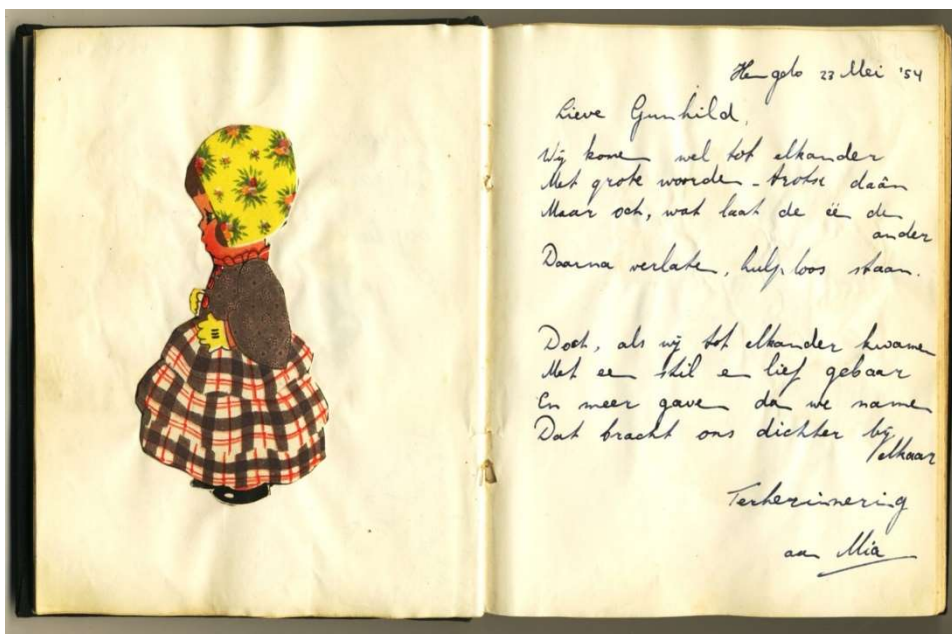 Hengelo 23 Mei '54
Lieve Gunhild,
Wij komen wel tot elkander
Met grote woorden - trotse daân
Maar och, wat laat de één de
ander
Daarna verlaten, hulploos staan.
Doch, als wij tot elkander kwamen
Met een stil en lief gebaar
En meer gaven dan we namen
Dat bracht ons dichter bij
elkaar
Terherinnering
aan Mia